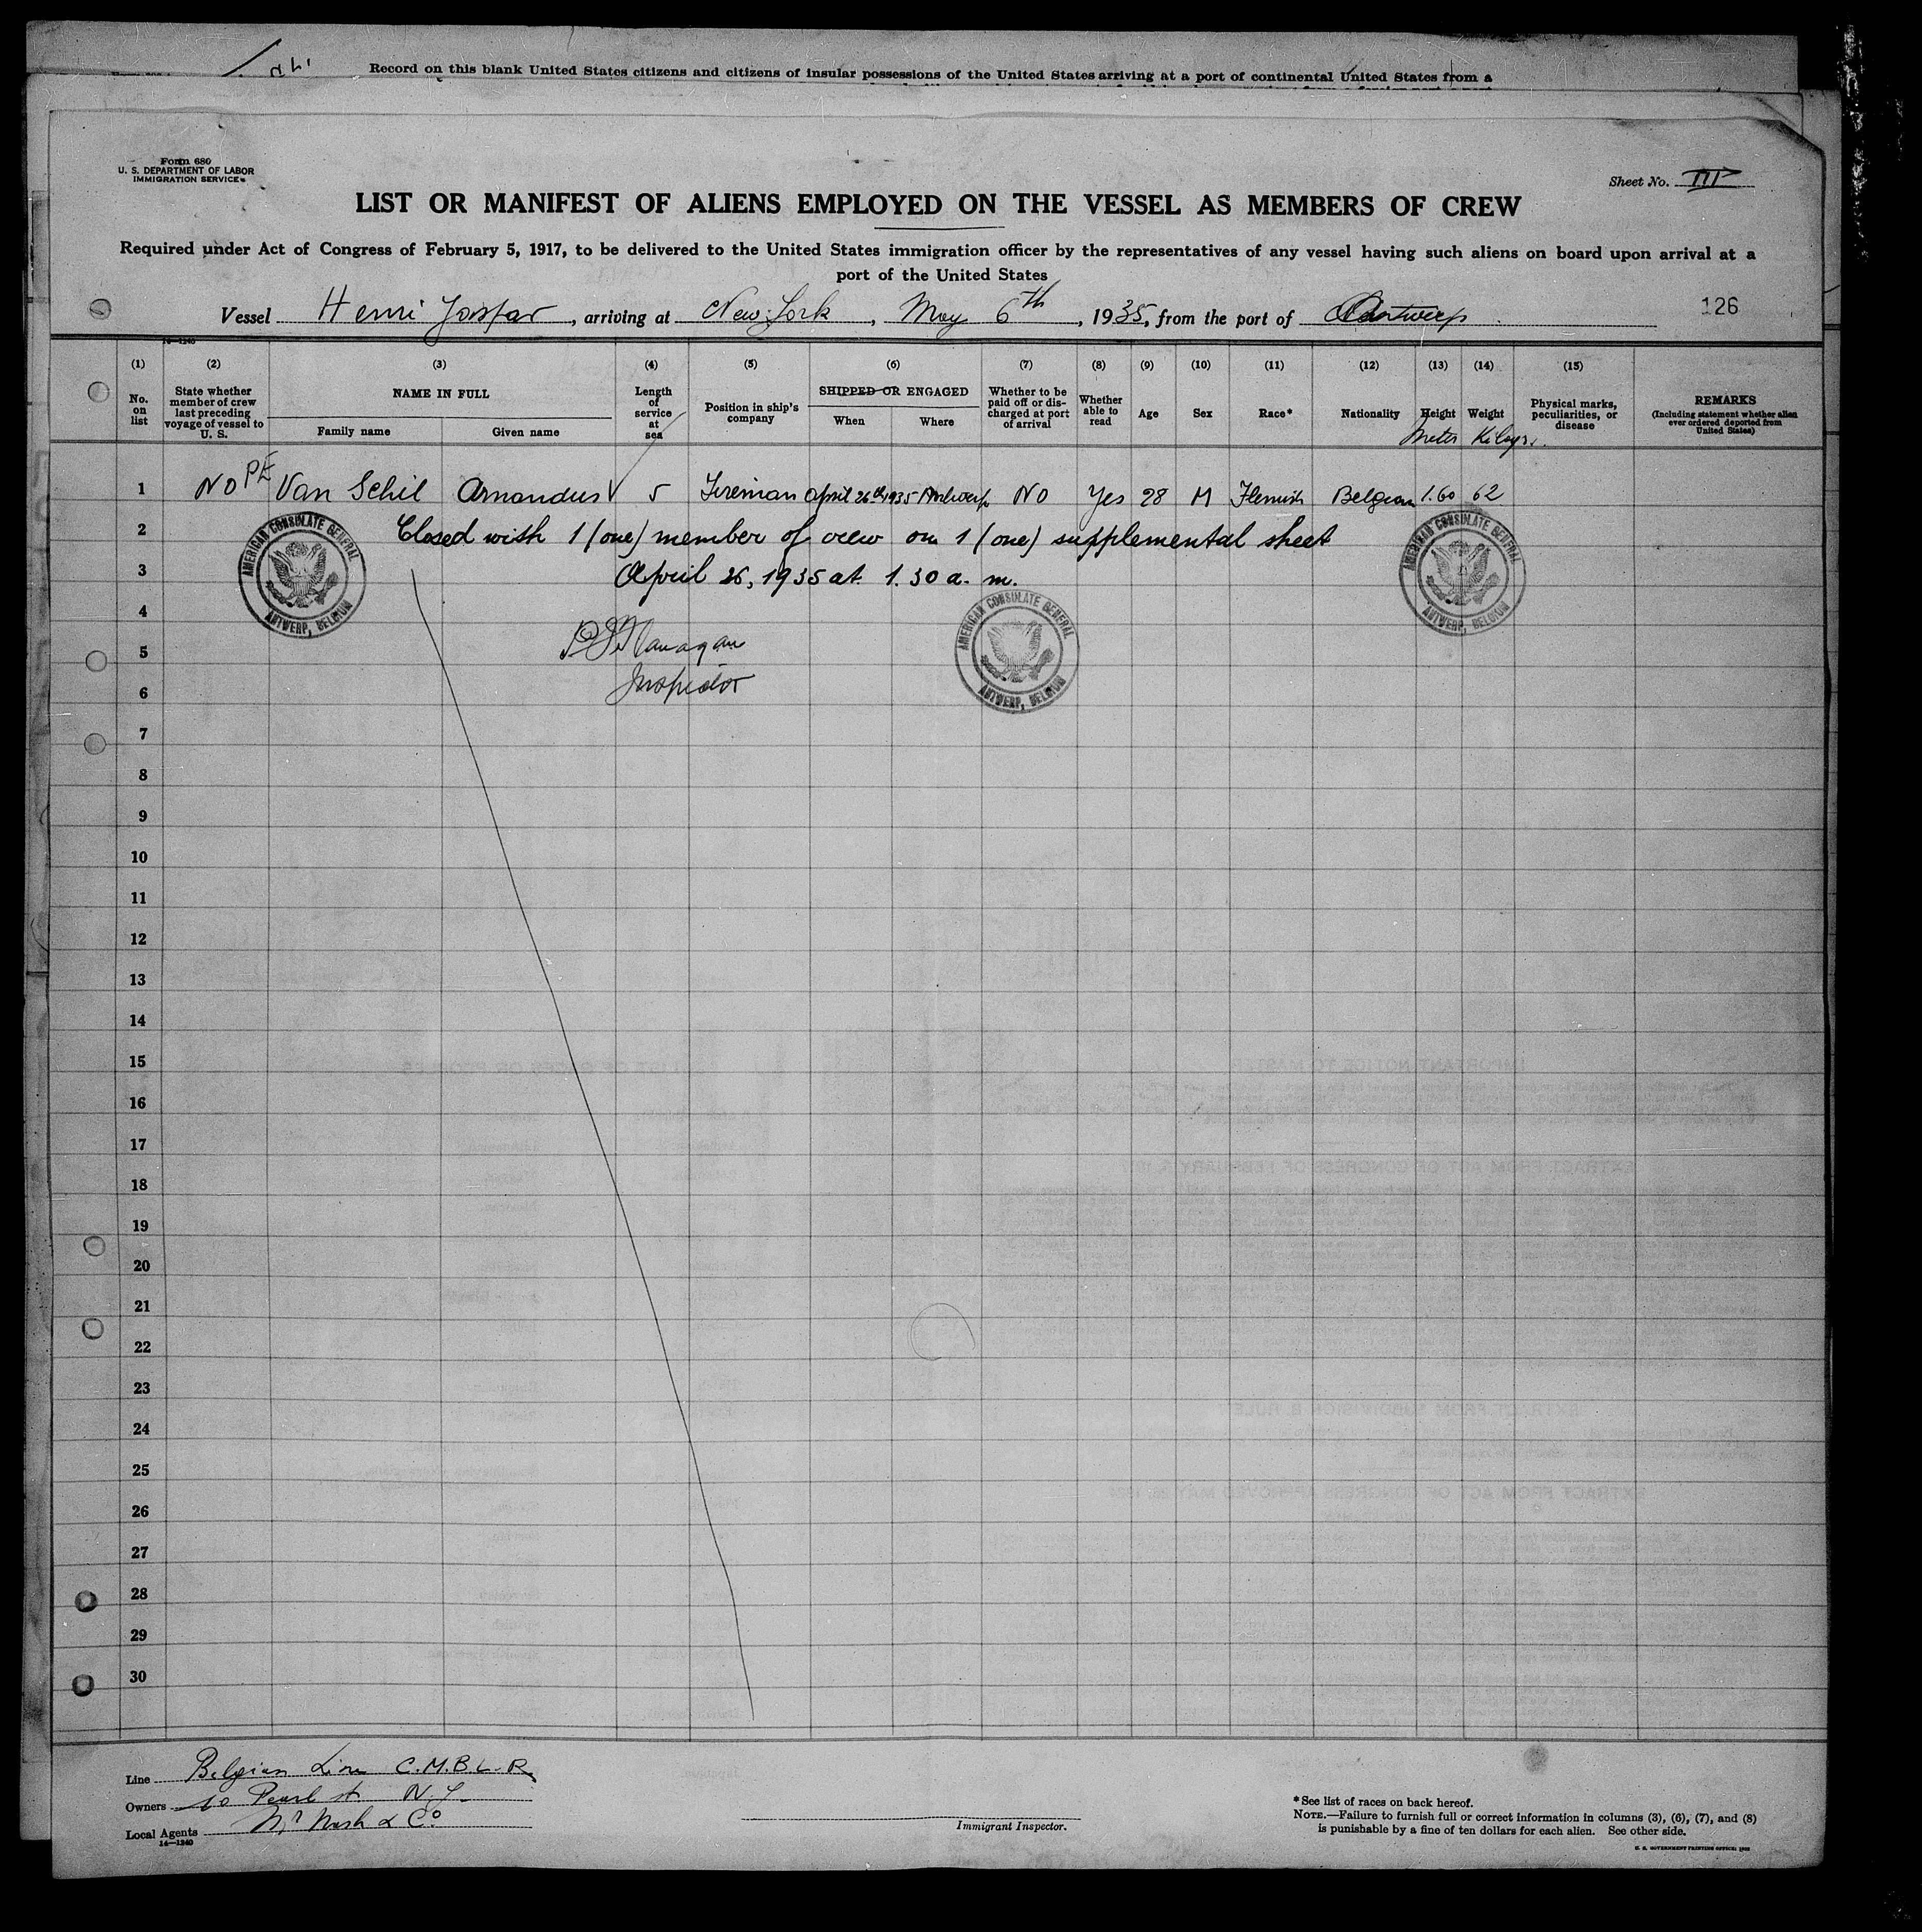 Record on this blank United States citizens and citizens of insular possessions of the United States arriving at a port of continental United States from a
Form 680
U. S. DEPARTMENT OF LABOR
IMMIGRATION SERVICE
Sheet No. III
LIST OR MANIFEST OF ALIENS EMPLOYED ON THE VESSEL AS MEMBERS OF CREW
Required under Act of Congress of February 5, 1917, to be delivered to the United States immigration officer by the representatives of any vessel having such aliens on board upon arrival at a
port of the United States
126
Vessel Henri Jaspar, arriving at New York, May 6th, 1935, from the port of Antwerp
14—1240
(1) (2) (3) (4) (5) (6) (7) (8) (9) (10) (11) (12) (13) (14) (15)
No. on list
State whether member of crew last preceding voyage of vessel to U. S.
NAME IN FULL
Family name
Given name
Length of service at sea
Position in ship's company
SHIPPED OR ENGAGED
When
Where
Whether to be paid off or discharged at port of arrival
Whether able to read
Age
Sex
Race*
Nationality
Height
Weight
Physical marks, peculiarities, or disease
REMARKS
(Including statement whether alien ever ordered deported from United States)
Meter Kilogr.
1 NO PE Van Schil Armandus 5 Fireman April 26th 1935 Antwerp NO Yes 28 M Flemish Belgian 1.60 62
2 Closed with 1 (one) member of crew on 1 (one) supplemental sheet
3 April 26, 1935 at 1.30 a. m.
AMERICAN CONSULATE GENERAL
ANTWERP, BELGIUM
AMERICAN CONSULATE GENERAL
ANTWERP, BELGIUM
AMERICAN CONSULATE GENERAL
ANTWERP, BELGIUM
4
5
6 Inspector
7
8
9
10
11
12
13
14
15
16
17
18
19
20
21
22
23
24
25
26
27
28
29
30
Line Belgian Line C.M.B.L.R.
Owners 10 Pearl st. N.Y.
Local Agents & Co
14—1240
Immigrant Inspector.
* See list of races on back hereof.
NOTE.—Failure to furnish full or correct information in columns (3), (6), (7), and (8)
is punishable by a fine of ten dollars for each alien. See other side.